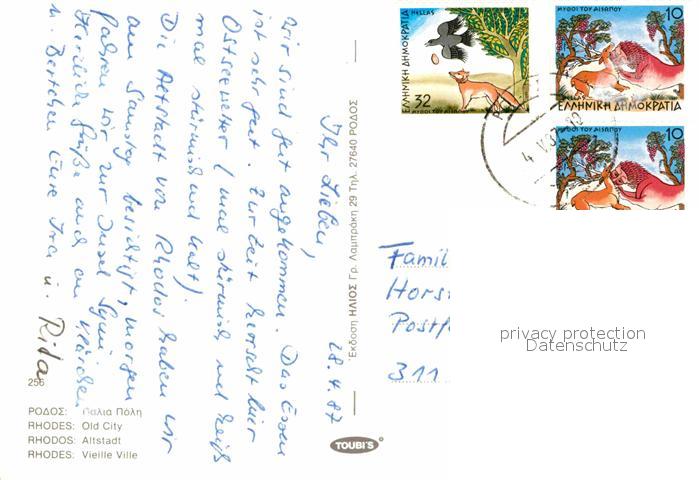 28.4.87
Ihr Lieben,
Wir sind gut angekommen. Das Essen
ist sehr gut. Zur Zeit herrscht hier
Ostseewetter (mal stürmisch und heiß
mal stürmisch und kalt).
Die Altstadt von Rhodos haben wir
am Samstag besichtigt, morgen
fahren wir zur Insel Symi.
Herzliche Grüße auch an Klärchen
u. Bertchen Eure Ina u. Rita
256
ΡΟΔΟΣ: Παλιά Πόλη
RHODES: Old City
RHODOS: Altstadt
RHODES: Vieille Ville
Έκδοση ΗΛΙΟΣ Γρ. Λαμπράκη 29 Τηλ. 27640 ΡΟΔΟΣ
TOUBI'S
ΕΛΛΗΝΙΚΗ ΔΗΜΟΚΡΑΤΙΑ
HELLAS
32
ΜΥΘΟΙ ΤΟΥ ΑΙΣΩΠΟΥ
ΜΥΘΟΙ ΤΟΥ ΑΙΣΩΠΟΥ 10
HELLAS
ΕΛΛΗΝΙΚΗ ΔΗΜΟΚΡΑΤΙΑ
ΜΥΘΟΙ ΤΟΥ ΑΙΣΩΠΟΥ 10
Famil
Hors
Postf
311
privacy protection
Datenschutz